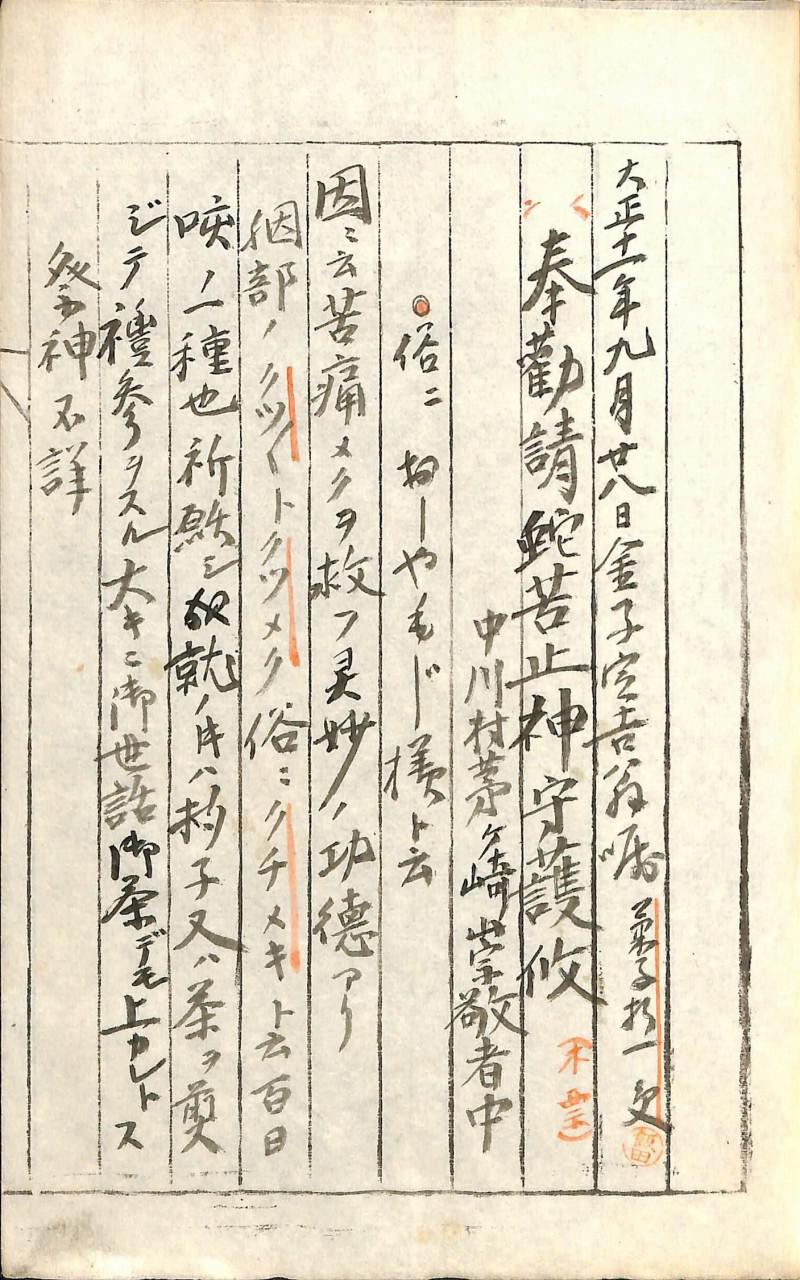 大正十一年九月廿八日金子定吉翁嘱
奉勸請蛇苦止神守護攸
中川村茅ケ崎崇敬者中
俗ニ おーやもじ様ト云
因ミニ云苦痛メクヲ救フ灵妙ノ功德アリ
咽部ノクツ〱トクツメク俗ニクチメキト云百日
咳ノ一種也祈願シ成就ノ時ハ杓子又ハ茶ヲ煎
ジテ禮參ヲスル大キニ御世話御茶デモ上カレトス
祭神不詳